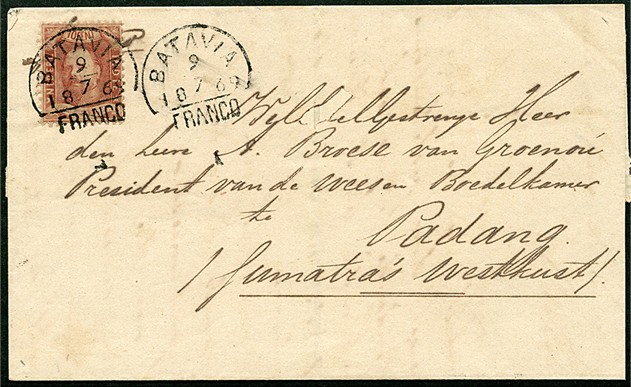 BATAVIA
9
7
186
FRANCO
BATAVIA
9
7
1869
FRANCO
Heer
den heere A. Broese van Groenou
President van de wees en Boedelkamer
te
Padang
/Sumatra's Westkust/.